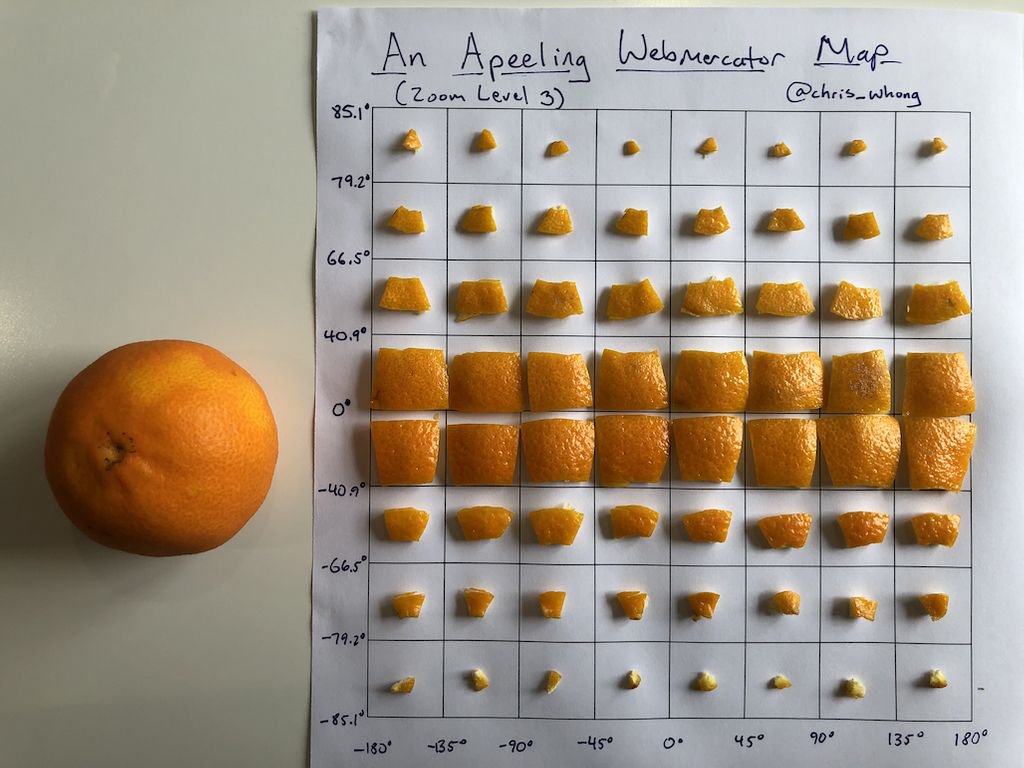 An Apeeling Webmercator Map
(Zoom Level 3) @chris_whong
85.1°
79.2°
66.5°
40.9°
0°
-40.9°
-66.5°
-79.2°
-85.1°
-180° -135° -90° -45° 0° 45° 90° 135° 180°